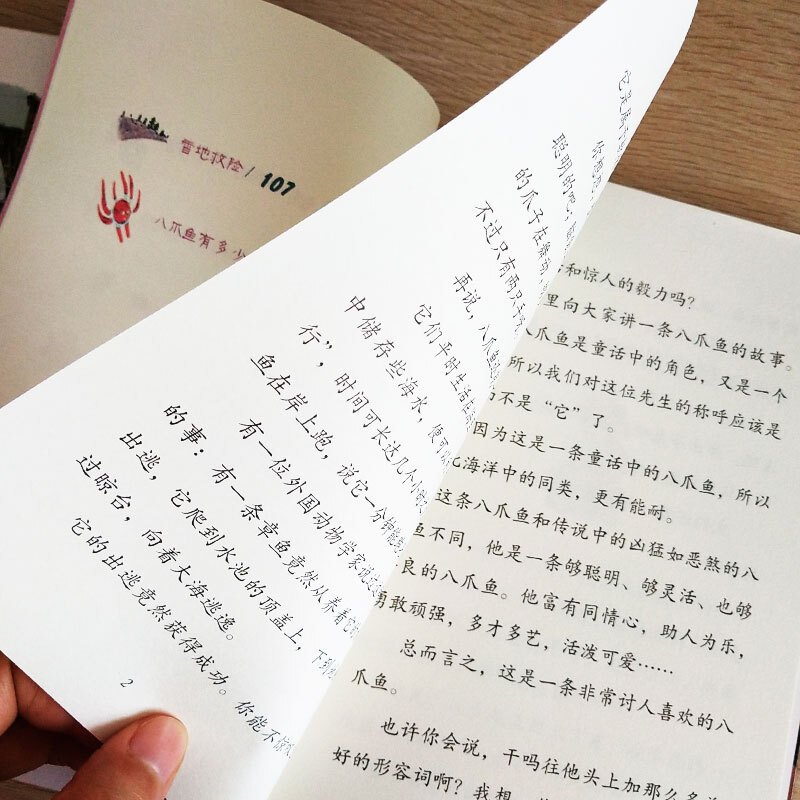 雪地救险/107
八爪鱼有多少
聪明的吧，
的爪子在
不过只有两只
再说，八爪鱼
它们平时生活
中储存些海水，便可
行”，时间可长达几个小
鱼在岸上跑，说它一分钟能
有一位外国动物学家
的事：有一条章鱼竟然从养着它
出逃，它爬到水池的顶盖上，
过晾台，向着大海逃逸。
它的出逃竟然获得成功。你能不惊
2
和惊人的毅力吗？
里向大家讲一条八爪鱼的故事。
八爪鱼是童话中的角色，又是一个
所以我们对这位先生的称呼应该是
不是“它”了。
因为这是一条童话中的八爪鱼，所以
海洋中的同类，更有能耐。
这条八爪鱼和传说中的凶猛如恶煞的八
鱼不同，他是一条够聪明、够灵活、也够
良的八爪鱼。他富有同情心，助人为乐，
勇敢顽强，多才多艺，活泼可爱……
总而言之，这是一条非常讨人喜欢的八
爪鱼。
也许你会说，干吗往他头上加那么多
好的形容词啊？我想，